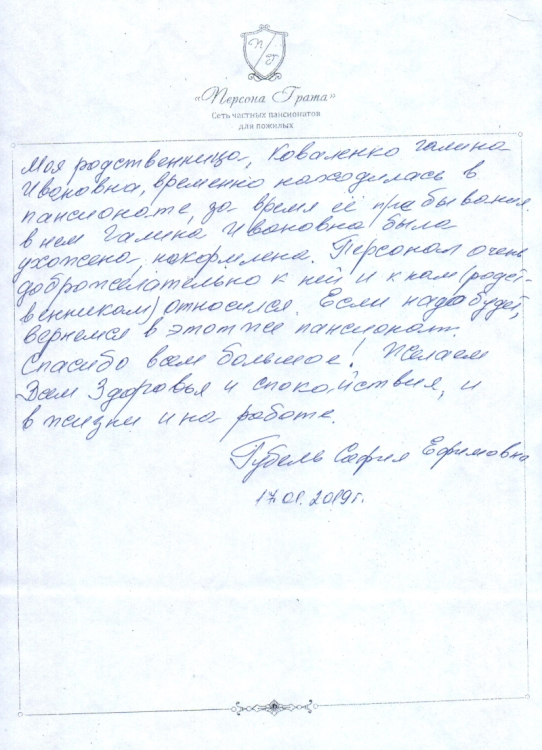 П Г
«Персона Грата»
Сеть честных пансионатов
для пожилых
Моя родственница, Коваленко Галина
Ивановна, временно находилась в
пансионате, за время её пребывания
в нем Галина Ивановна была
ухожена, накормлена. Персонал очень
доброжелательно к ней и к нам (родст-
венникам) относился. Если надо будет,
вернемся в этот же пансионат.
Спасибо вам большое! Желаем
Вам Здоровья и спокойствия, и
в жизни и на работе.
Губель София Ефимовна
17.01.2019г.